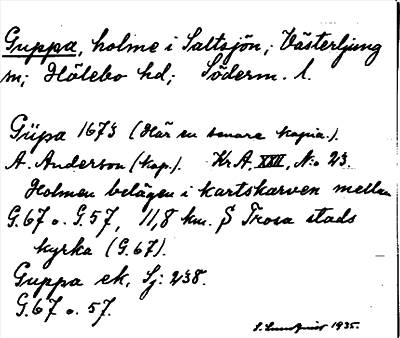 Guppa, holme i Saltsjön, Västerljung
sn; Hölebo hd; Söderm. l.
Güpa 1673 (Här en senare kopia.).
A. Anderson (kop.). Kr A, XXII, No 23.
Holmen belägen i kartskarven mellan
G.67 o. G.57, 11,8 km. S Trosa stads
kyrka (G.67).
Guppa ek, Sj: 238.
G.67 o. 57.
S. Lundquist 1935.